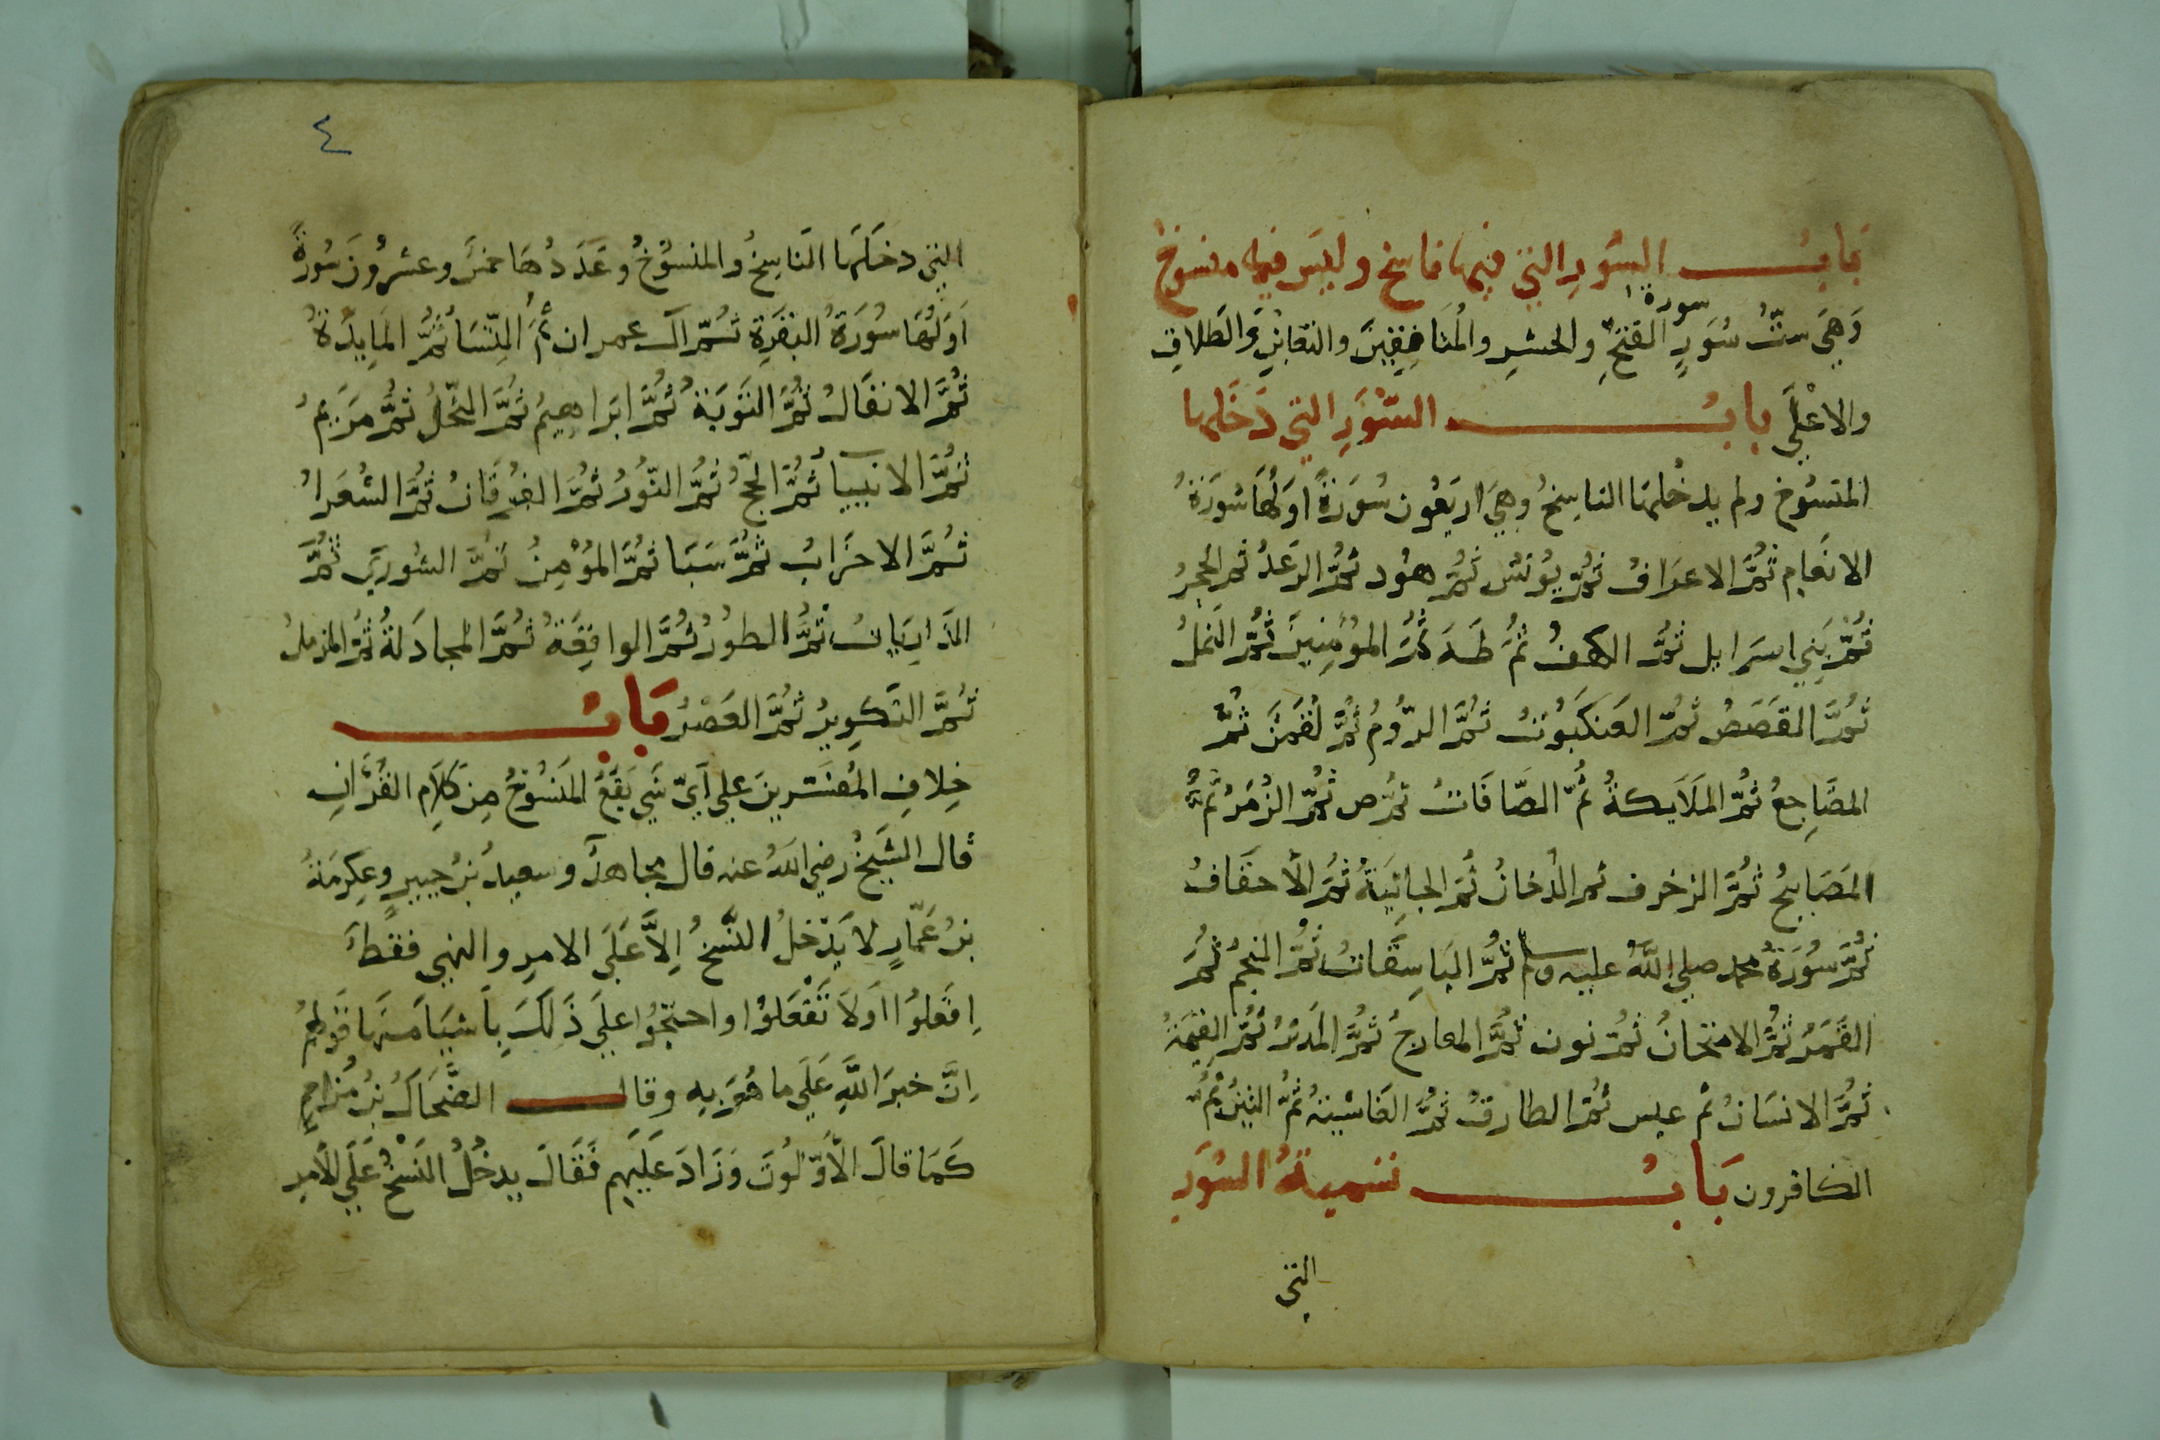 بَابُ السُّوَرِ التي فيها ناسخ وليس فيه منسوخ
وَهِيَ ستُّ سُوَرٍ سورة الفتحِ والحشرِ والمُنَافِقِينَ والتغابنِ والطلاقِ
والاعْلَى بابُ السُّوَرِ التي دَخَلها
المنسُوخ ولم يدخُلها الناسِخُ وهِيَ اربَعُون سُورَةً اولُهَا سُورَةُ
الانعَامِ ثُمَّ الاعرَافُ ثُمَّ يُونسُ ثُمَّ هُود ثُمَّ الرعدُ ثم الحِجرُ
ثُمَّ بَنِي اسرَايل ثُمَّ الكهفُ ثُمَّ طَهَ ثُمَّ المؤمِنِينَ ثُمَّ النملُ
ثُمَّ القَصَصُ ثُمَّ العَنكَبُوتُ ثُمَّ الرُّومُ ثُمَّ لُقمَنَ ثُمَّ
المضَاجِعُ ثُمَّ المَلَايكةُ ثُمَّ الصَّافَاتُ ثُمَّ ص ثُمَّ الزُمَرُ ثُمَّ
المَصَابيحُ ثُمَّ الزخرف ثم الدُخانُ ثُمَّ الجاثِيَةُ ثُمَّ الأحقَافُ
ثُمَّ سُورَةُ محمد صلي اللهُ عليه وسلم ثُمَّ البَاسِقَاتُ ثُمَّ النجمُ ثُمَّ
القَمَرُ ثُمَّ الامتحَانُ ثُمَّ نون ثُمَّ المعارجُ ثُمَّ المدثرُ ثُمَّ القِيمَةُ
ثُمَّ الانسَانُ ثم عبس ثُمَّ الطارقُ ثُمَّ الغَاشِيَةُ ثُمَّ التينُ ثُمَّ
الكافرون بَابُ تسميةُ السُوَرِ
التي
٤
التي دخَلَها النَاسِخُ والمنسُوخُ وعَدَدُهَا خمسٌ وعشرُونَ سُورةً
اَوَلُهَا سُورَةُ البَقَرَةِ ثُمَّ آل عمران ثُمَّ النِّسَا ثُمَّ المَايِدَةُ
ثُمَّ الانفَالُ ثُمَّ التَوبَةُ ثُمَّ ابرَاهيمُ ثُمَّ النَّحلُ ثُمَّ مَريَمُ
ثُمَّ الانبيَا ثُمَّ الحَجُّ ثُمَّ النُّورُ ثُمَّ الفُرقَانُ ثُمَّ الشُعَرَا
ثُمَّ الاحزَابُ ثُمَّ سَبَا ثُمَّ المُؤْمِنُ ثُمَّ الشورَي ثُمَّ
الذَارِيَاتُ ثُمَّ الطورُ ثُمَّ الواقِعَةُ ثُمَّ المجادَلةُ ثُمَّ المزملُ
ثُمَّ التكوِيرُ ثُمَّ العَصْرُ بَابُ
خِلافِ المُفسّرِينَ علي اَيّ شَي يَقَعُ المَنسُوخُ مِن كَلَامِ القُرَآنِ
قال الشَيخُ رضي اللهُ عنه قال مجاهدٌ وسعيدُ بنُ جبيرٍ وعِكرمَةُ
بنُ عَمَّارٍ لا يَدْخلُ النَّسخُ اِلاَّ عَلَي الامرِ والنهي فقطَ
اِفعَلوُا اَولَا تَفْعَلوُا واحتجُوا علي ذَلكَ بِاَشيَا منها قَولهُمُ
اِنَّ خبرَ اللَّهِ عَلَي ما هُوَ بِهِ وقال الضَّحَاكُ بنُ مُزَاحِمِ
كَمَا قالَ الأَوّلُونَ وَزَادَ عَلَيهِم فَقَالَ يدخُلُ النَسْخُ عَلَي الأمرِ